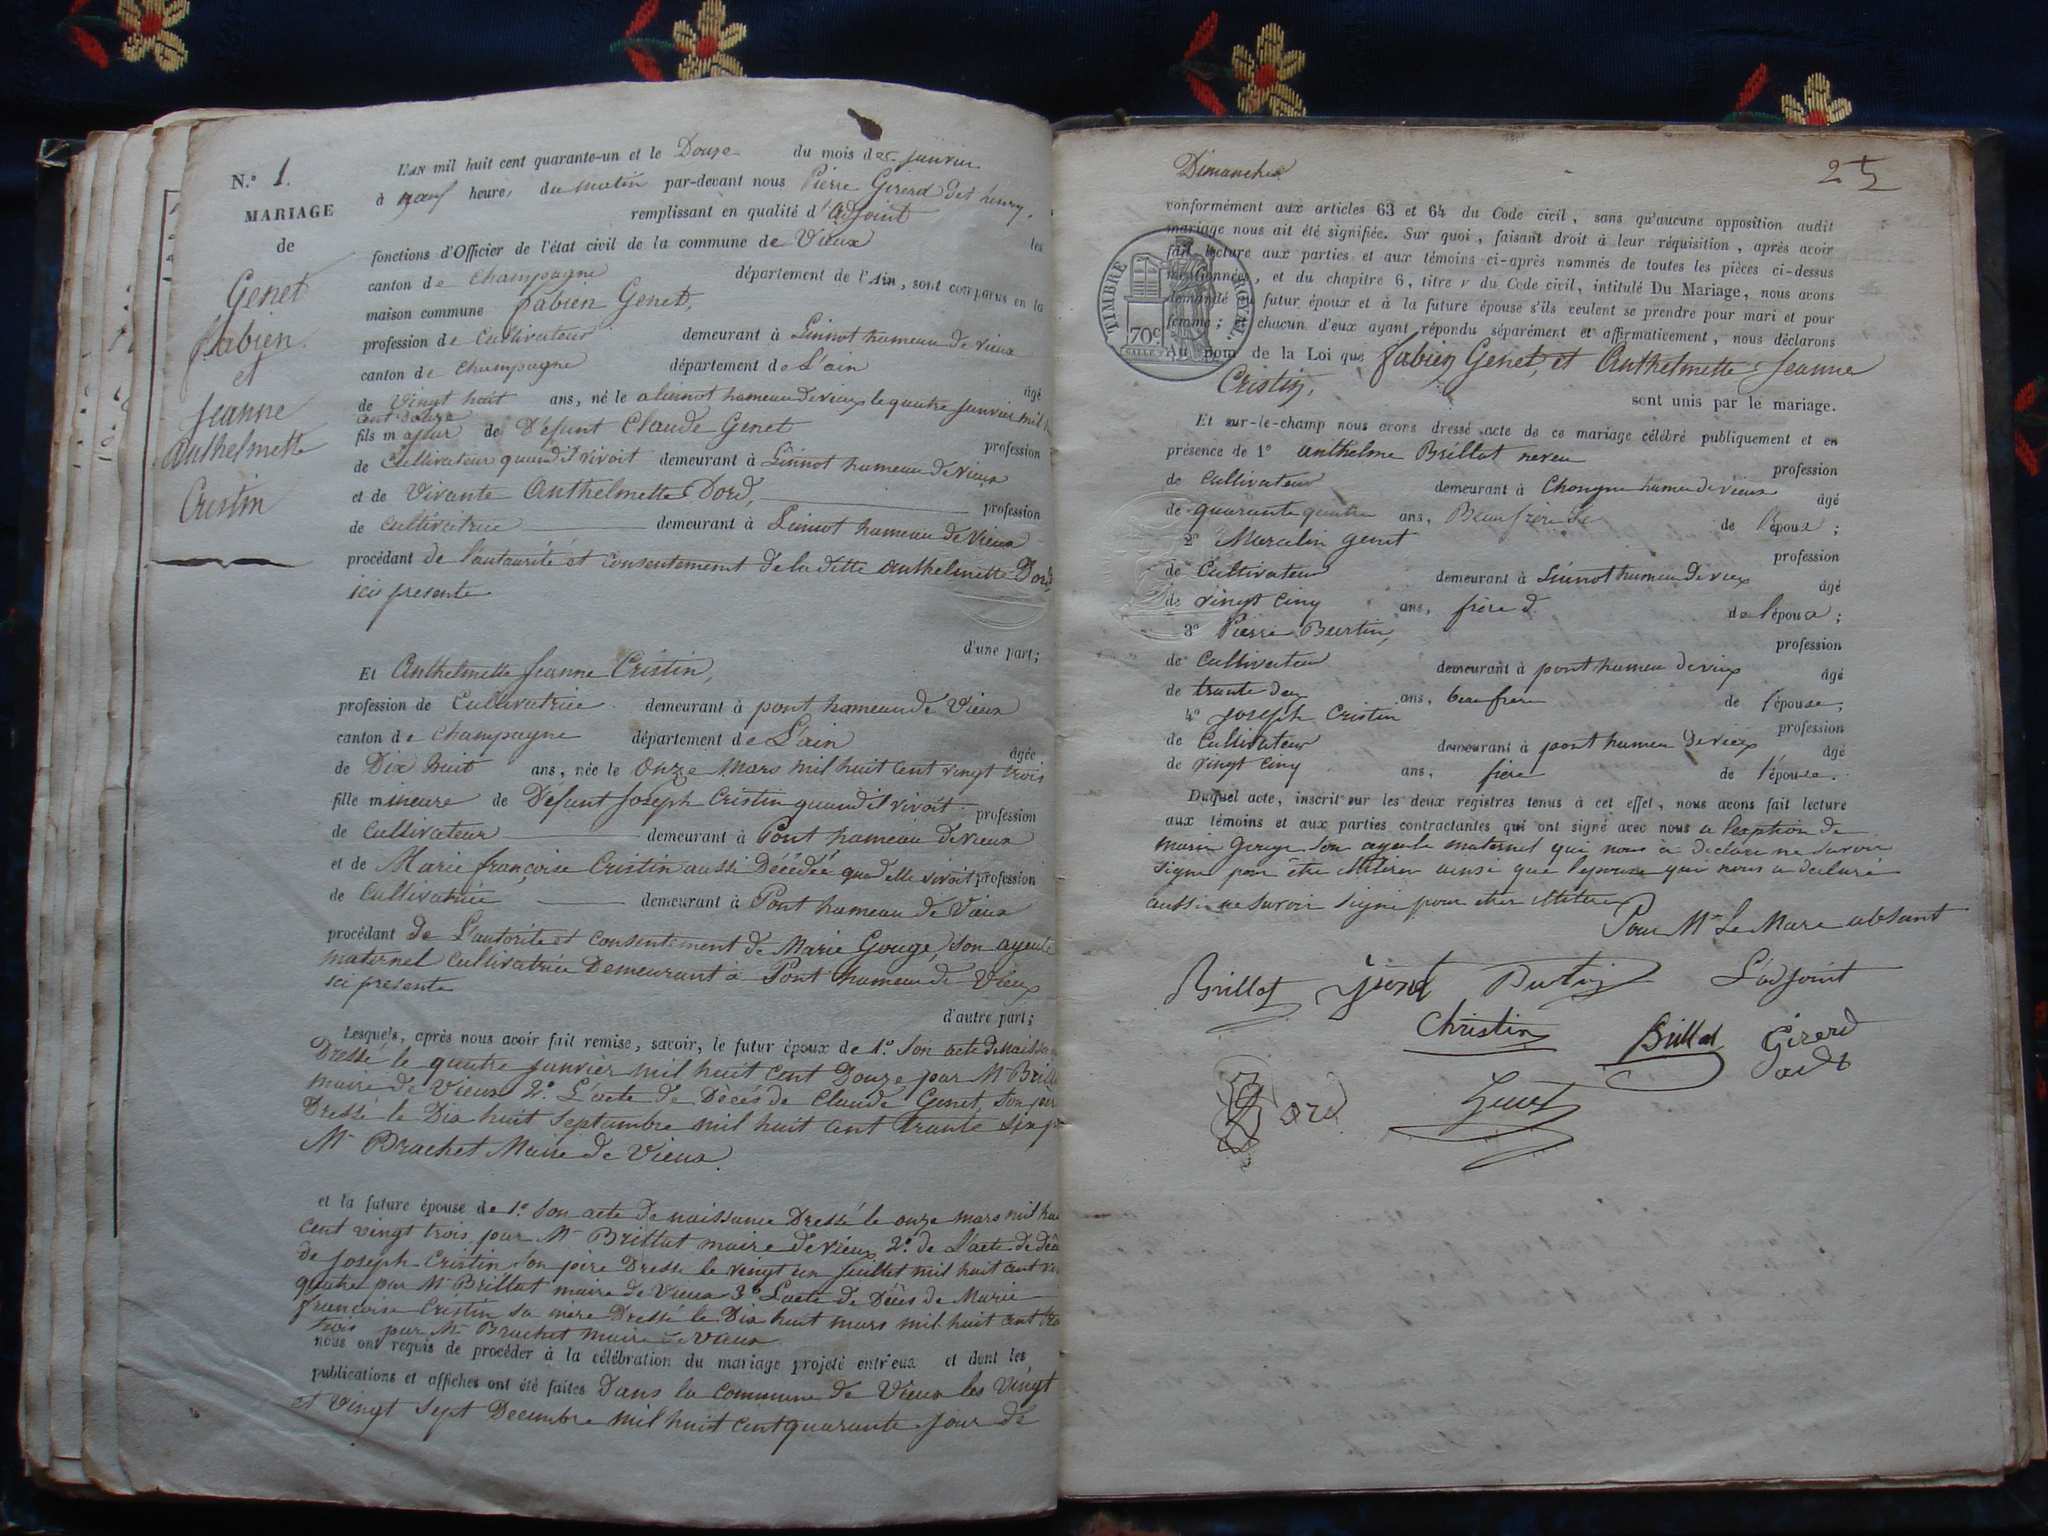 N.° 1.
MARIAGE
de
Genet
fabien.
et
Jeanne
Anthelmette
Cristin
L'AN mil huit cent quarante-un et le Douze du mois de janvier
à neuf heures du matin par-devant nous Pierre Girerd
remplissant en qualité d'adjoint les
fonctions d'Officier de l'état civil de la commune de Vieux
canton de Champagne département de l'Ain, sont comparus en la
maison commune fabien Genet,
profession de Cultivateur demeurant à Linnot hameau de vieux
canton de Champagne département de L'ain âgé
de vingt huit ans, né le a linnot hameau de vieux le quatre janvier mil
cent douze
fils majeur de Défunt Claude Genet profession
de Cultivateur quand il vivoit demeurant à Linnot hameau de vieux
et de Vivante Anthelmette Dord, profession
de Cultivatrice demeurant à Linnot hameau de Vieux
procédant de l'autaurité et consentement de la ditte anthelmette Dord
ici presente
d'une part;
Et Anthelmette Jeanne Cristin,
profession de Cultivatrice demeurant à pont hameau de Vieux
canton de Champagne département de L'ain âgée
de Dix huit ans, née le onze Mars mil huit cent vingt trois
fille mineure de Défunt Joseph Cristin quand il vivoit profession
de Cultivateur demeurant à Pont hameau de vieux
et de Marie françoise Cristin aussi Décédée quad elle vivoit profession
de Cultivatrice demeurant à Pont hameau de Vieux
procédant de L'autorité et consentement de Marie Gouge, son ayeule
maternel cultivatrice Demeurant à Pont hameau de Vieux
ici presente
d'autre part;
Lesquels, après nous avoir fait remise, savoir, le futur époux de 1.° Son acte de Naissa
Dressé le quatre janvier mil huit cent Douze par Mr Brill
maire de Vieux 2.° L'acte de Décés de Claude Genet, Son per
Dressé le Dix huit Septembre mil huit cent trente Six p
Mr Brachet Maire de Vieux.
et la future épouse de 1.° Son acte de naissance Dressé le onze mars mil hui
cent vingt trois par Mr Brillat maire de vieux 2.° de L'acte de déc
de Joseph Cristin Son père Dressé le vingt un juillet mil huit cent vin
quatre par Mr Brillat maire de Vieux 3° L'acte de Décés de Marie
françoise Cristin sa mère Dressé le Dix huit mars mil huit cent tre
trois par Mr Brachet maire de vieux
nous ont requis de procéder à la célébration du mariage projeté entr'eux et dont les
publications et affiches ont été faites Dans la Commune de Vieux les vingt
et vingt Sept Decembre mil huit cent quarante jour de
Dimanche
25
conformément aux articles 63 et 64 du Code civil, sans qu'aucune opposition audit
mariage nous ait été signifiée. Sur quoi, faisant droit à leur réquisition, après avoir
fait lecture aux parties et aux témoins ci-après nommés de toutes les pièces ci-dessus
mentionnées, et du chapitre 6, titre v du Code civil, intitulé Du Mariage, nous avons
demandé au futur époux et à la future épouse s'ils veulent se prendre pour mari et pour
femme; chacun d'eux ayant répondu séparément et affirmativement, nous déclarons
Au nom de la Loi que fabien Genet, et Anthelmette Jeanne
Cristin,
sont unis par le mariage.
TIMBRE ROYAL
70c
Et sur-le-champ nous avons dressé acte de ce mariage célébré publiquement et en
présence de 1° anthelme Brillat neveu profession
de Cultivateur demeurant à Chongne hameau de vieux âgé
de quarante quatre ans, Beaufrere de l'Epoux;
2° Marcelin genet profession
de Cultivateur demeurant à Linnot hameau de vieux âgé
de vingt cinq ans, frère d. de l'époux;
3° Pierre Burtin, profession
de Cultivateur demeurant à pont hameau de vieux âgé
de trante deux ans, beau frere de l'épouse,
4° Joseph Cristin profession
de Cultivateur demeurant à pont hameau de vieux âgé
de vingt cinq ans, frère de l'épouse.
Duquel acte, inscrit sur les deux registres tenus à cet effet, nous avons fait lecture
aux témoins et aux parties contractantes qui ont signé avec nous a l'exption de
marie son ayeule maternel qui nous a declaré ne savoir
signe pour être ainsi que l'epouse qui nous a declaré
aussi ne savoir signé pour
Pour Mr Le Mare absant
L'adjoint
Brillat Genet Burtin
Christin Brillat Girerd
Dord Genet